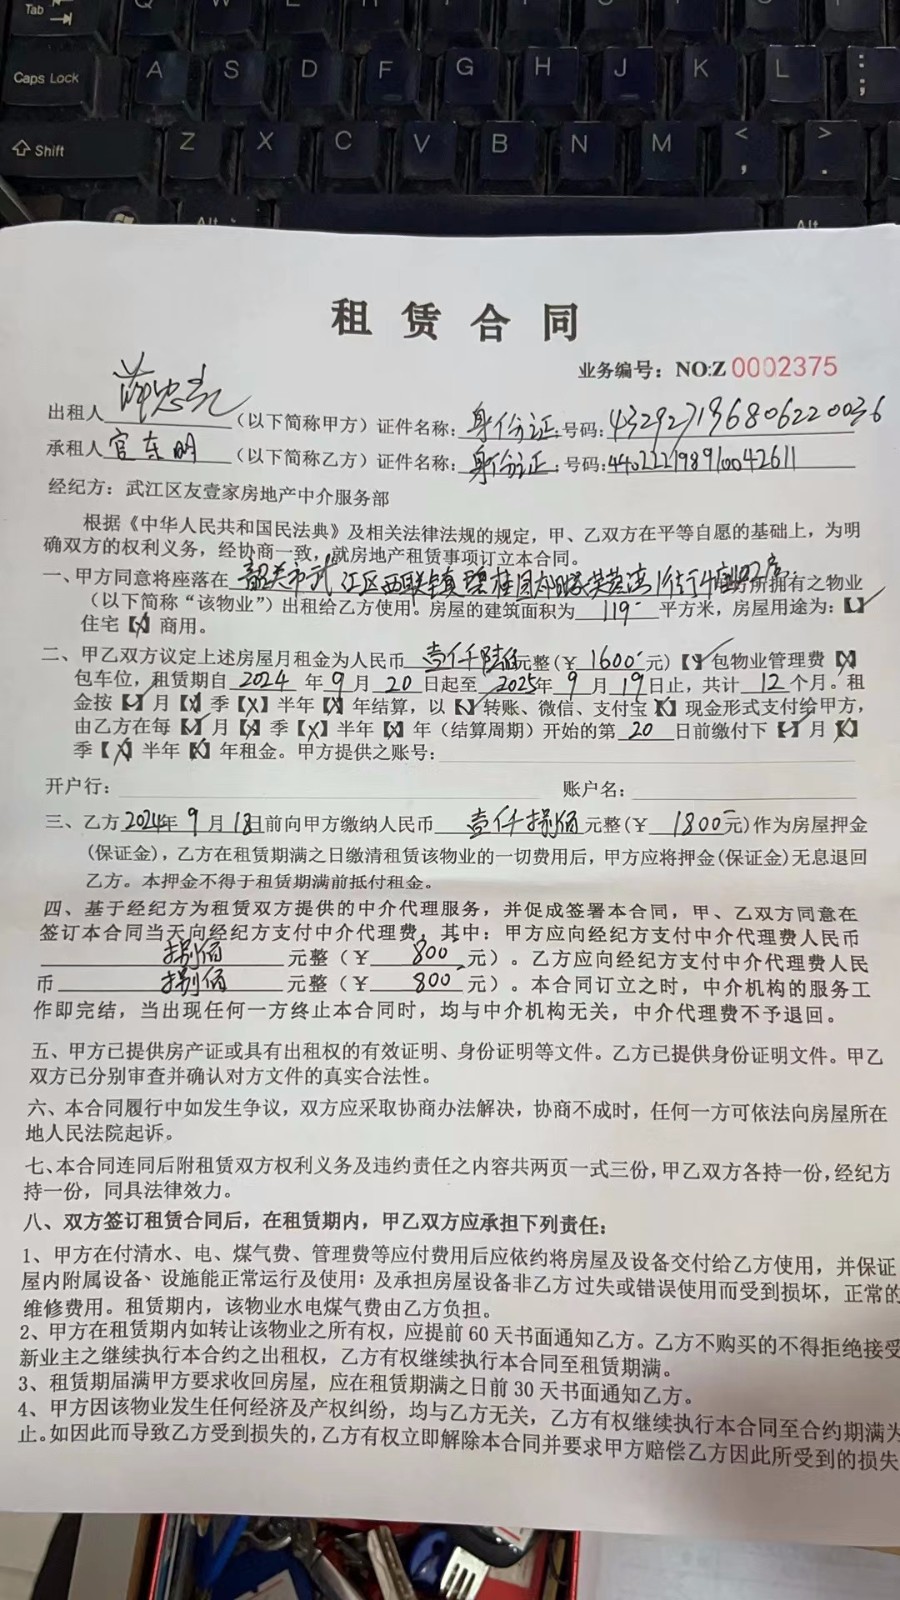 Tab
Q W E R T Y U I O P
Caps Lock A S D F G H J K L : ;
Shift Z X C V B N M < , > .
Alt Alt
租赁合同
业务编号：NO:Z 0002375
出租人 （以下简称甲方）证件名称：身份证 号码：432927196806220036
承租人 官东明 （以下简称乙方）证件名称：身份证 号码：440222198910042611
经纪方：武江区友壹家房地产中介服务部
根据《中华人民共和国民法典》及相关法律法规的规定，甲、乙双方在平等自愿的基础上，为明
确双方的权利义务，经协商一致，就房地产租赁事项订立本合同。
一、甲方同意将座落在 韶关市武江区西联镇碧桂园太阳城芙蓉湾1街 房所拥有之物业
（以下简称“该物业”）出租给乙方使用！房屋的建筑面积为 119 平方米，房屋用途为：【✓】
住宅【X】商用。
二、甲乙双方议定上述房屋月租金为人民币 壹仟陆佰 元整（￥ 1600 元）【✓】包物业管理费【X】
包车位，租赁期自 2024 年 9 月 20 日起至 2025 年 9 月 19 日止，共计 12 个月。租
金按【✓】月【X】季【X】半年【X】年结算，以【✓】转账、微信、支付宝【X】现金形式支付给甲方，
由乙方在每【✓】月【X】季【X】半年【X】年（结算周期）开始的第 20 日前缴付下【✓】月【X】
季【X】半年【X】年租金。甲方提供之账号：
开户行： 账户名：
三、乙方 2024年 9 月 18日前向甲方缴纳人民币 壹仟捌佰 元整(￥ 1800元)作为房屋押金
(保证金)，乙方在租赁期满之日缴清租赁该物业的一切费用后，甲方应将押金(保证金)无息退回
乙方。本押金不得于租赁期满前抵付租金。
四、基于经纪方为租赁双方提供的中介代理服务，并促成签署本合同，甲、乙双方同意在
签订本合同当天向经纪方支付中介代理费，其中：甲方应向经纪方支付中介代理费人民币
捌佰 元整（￥ 800 元）。乙方应向经纪方支付中介代理费人民
币 捌佰 元整（￥ 800 元）。本合同订立之时，中介机构的服务工
作即完结，当出现任何一方终止本合同时，均与中介机构无关，中介代理费不予退回。
五、甲方已提供房产证或具有出租权的有效证明、身份证明等文件。乙方已提供身份证明文件。甲乙
双方已分别审查并确认对方文件的真实合法性。
六、本合同履行中如发生争议，双方应采取协商办法解决，协商不成时，任何一方可依法向房屋所在
地人民法院起诉。
七、本合同连同后附租赁双方权利义务及违约责任之内容共两页一式三份，甲乙双方各持一份，经纪方
持一份，同具法律效力。
八、双方签订租赁合同后，在租赁期内，甲乙双方应承担下列责任：
1、甲方在付清水、电、煤气费、管理费等应付费用后应依约将房屋及设备交付给乙方使用，并保证
屋内附属设备、设施能正常运行及使用；及承担房屋设备非乙方过失或错误使用而受到损坏，正常的
维修费用。租赁期内，该物业水电煤气费由乙方负担。
2、甲方在租赁期内如转让该物业之所有权，应提前 60 天书面通知乙方。乙方不购买的不得拒绝接受
新业主之继续执行本合约之出租权，乙方有权继续执行本合同至租赁期满。
3、租赁期届满甲方要求收回房屋，应在租赁期满之日前 30 天书面通知乙方。
4、甲方因该物业发生任何经济及产权纠纷，均与乙方无关，乙方有权继续执行本合同至合约期满为
止。如因此而导致乙方受到损失的，乙方有权立即解除本合同并要求甲方赔偿乙方因此所受到的损失